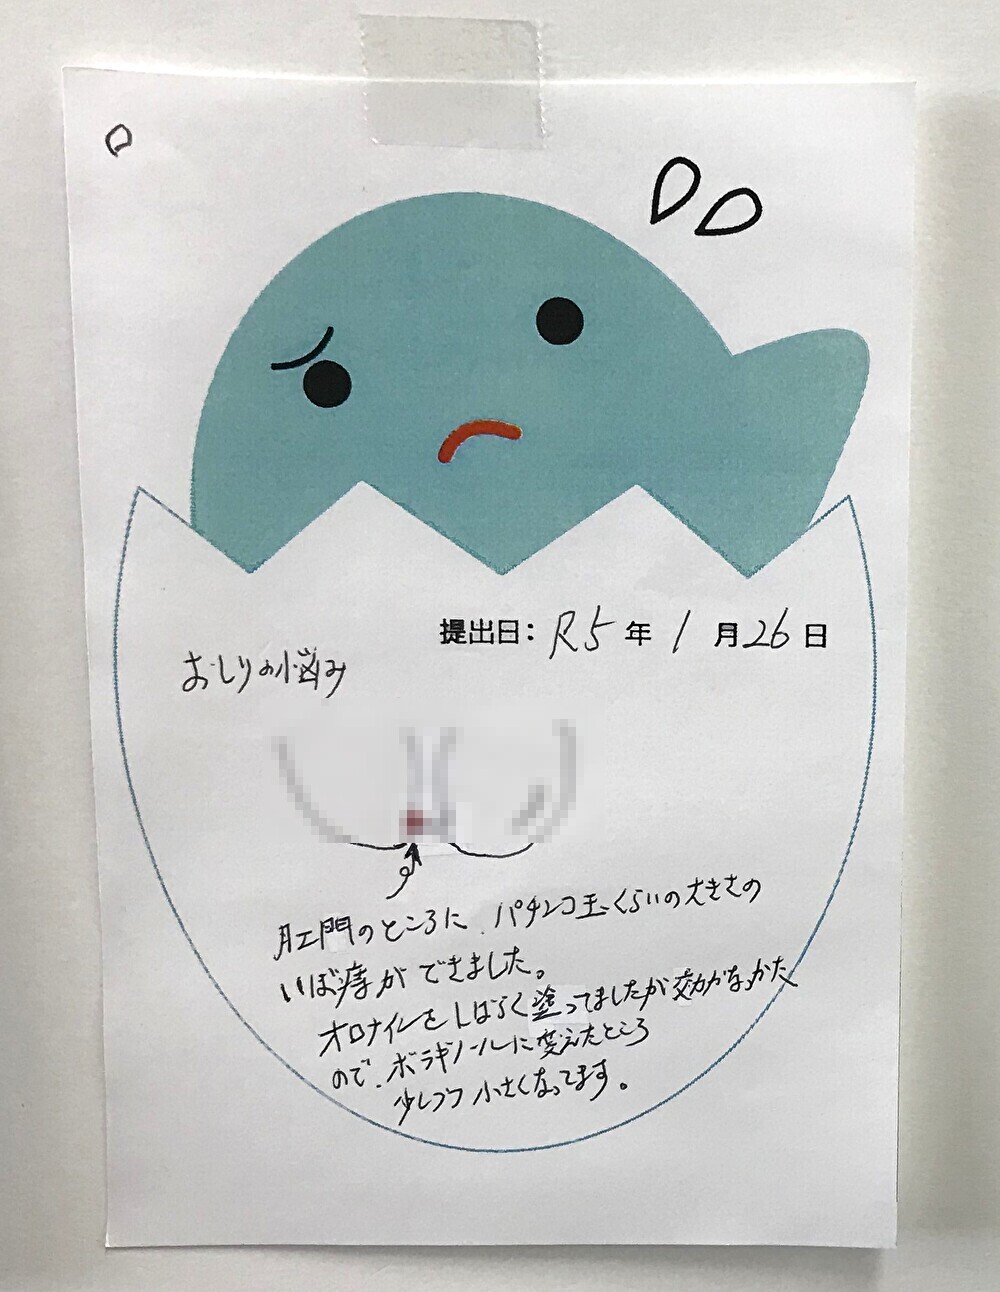 提出日: R5年 1月26日
おしりの悩み
肛門のところに、パチンコ玉くらいの大きさの
いぼ痔ができました。
オロナインをしばらく塗ってましたが効かなかった
ので、ボラギノールに変えたところ
少しづつ小さくなってます。